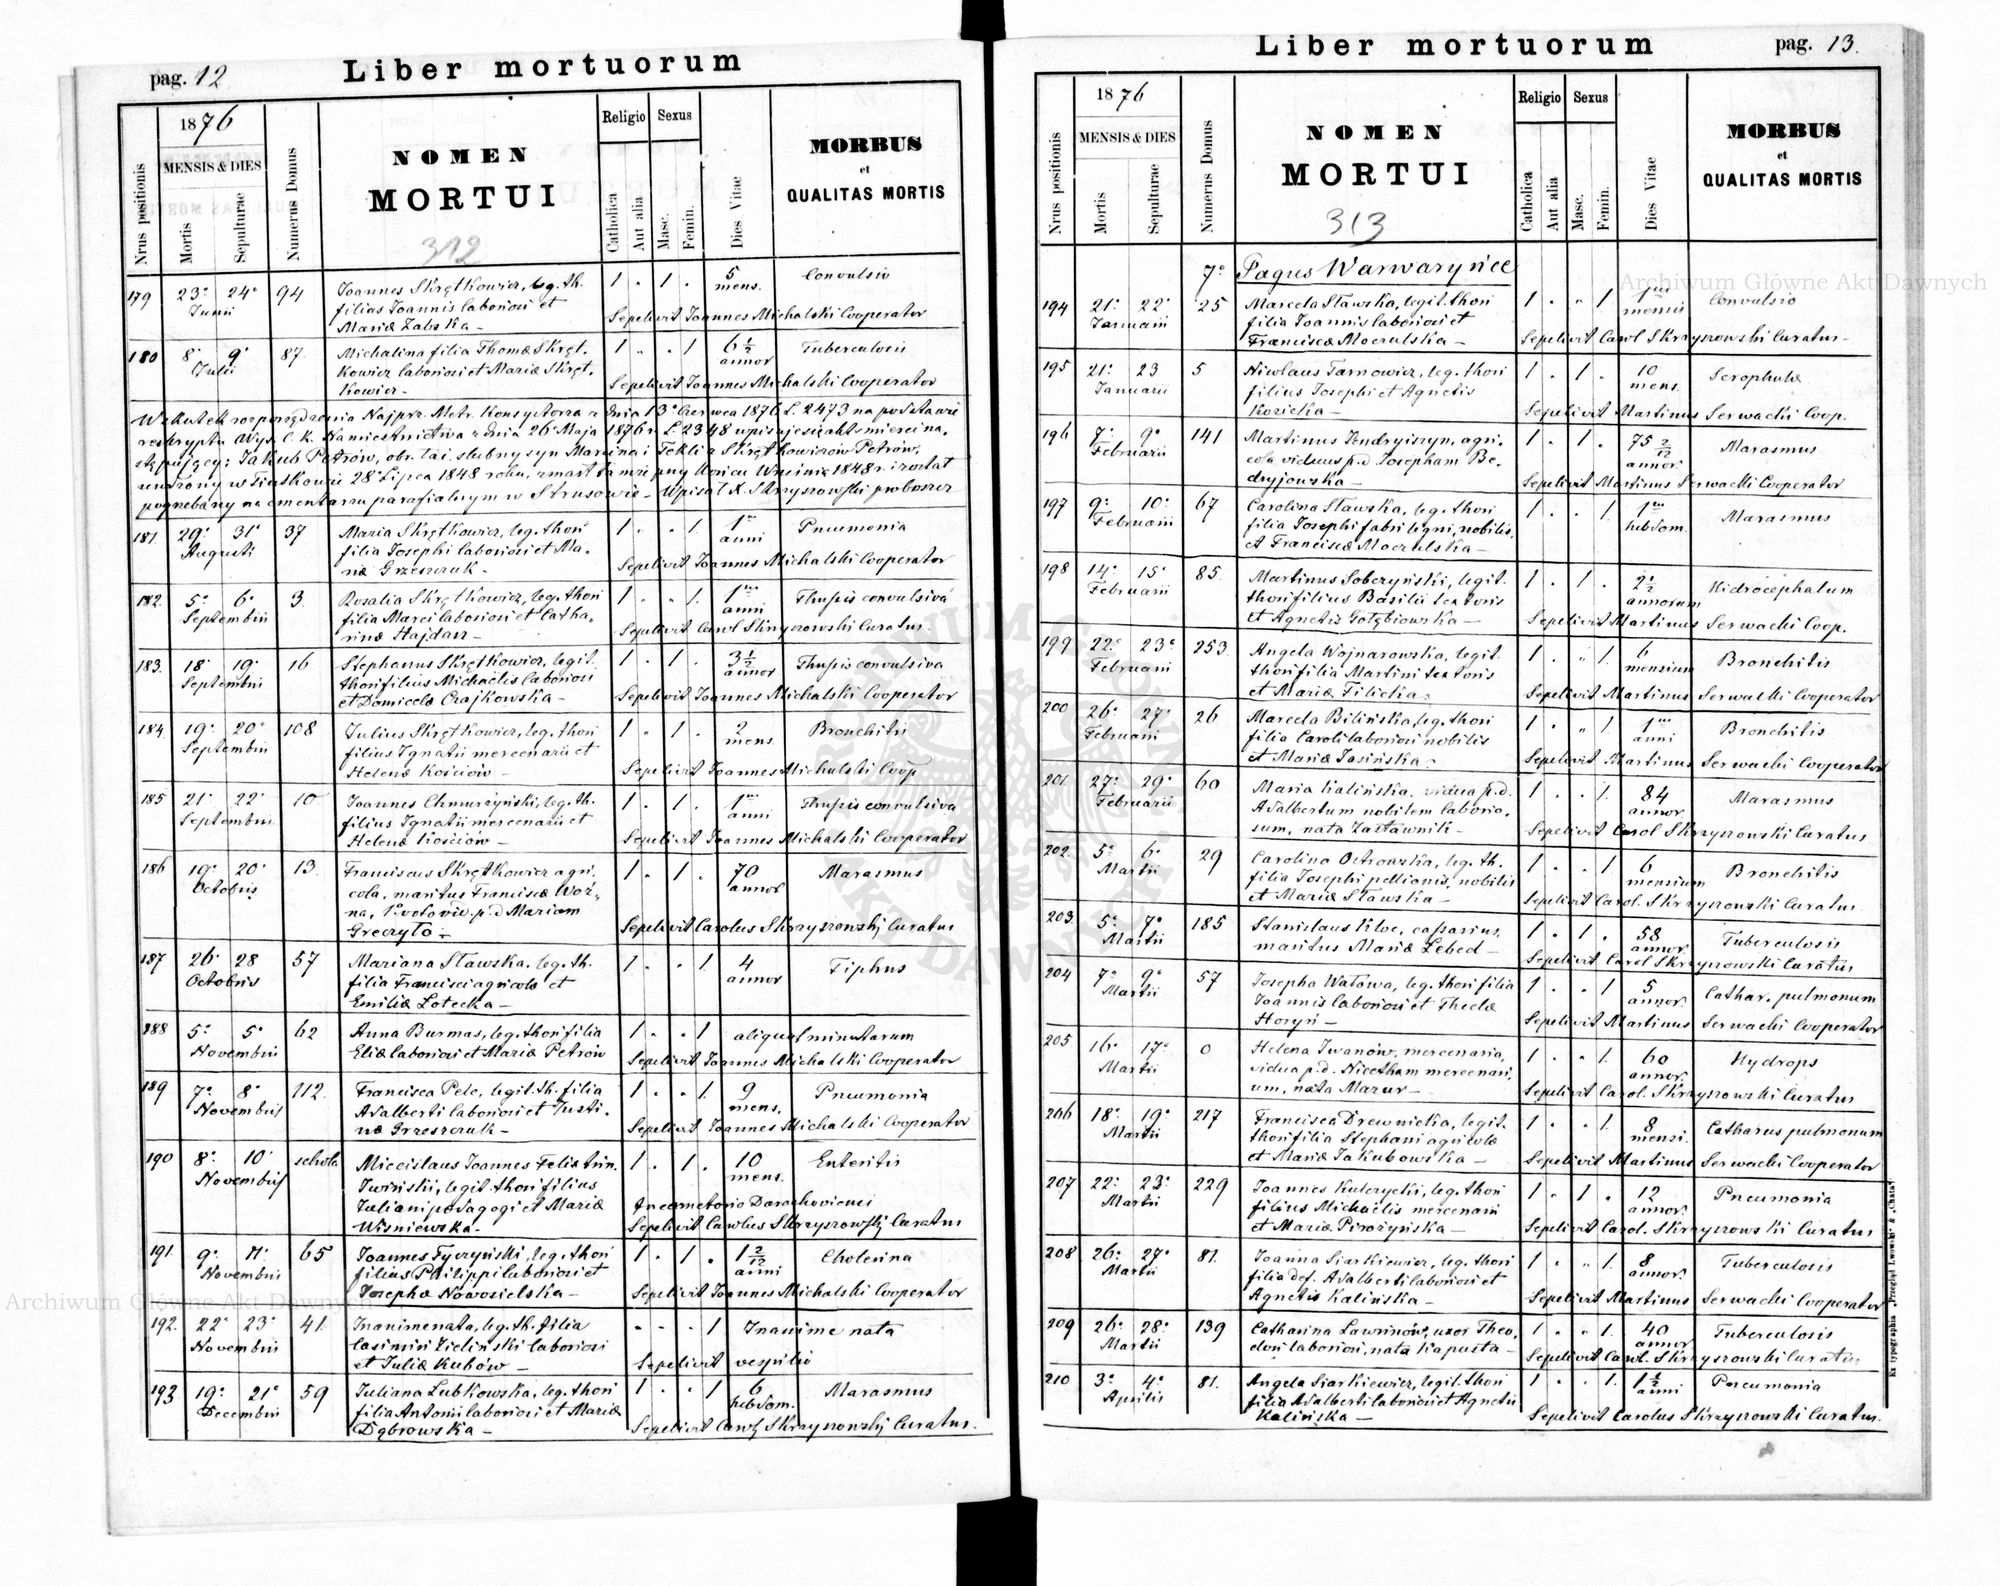 pag. 12
Liber mortuorum
Nrus positionis
1876
MENSIS & DIES
Mortis
Sepulturae
Numerus Domus
NOMEN
MORTUI
312
Religio
Catholica
Aut alia
Sexus
Masc.
Femin.
Dies Vitae
MORBUS
et
QUALITAS MORTIS
179 23° 24° 94 Joannes Skrętkowicz, leg. th. 1 . 1 . 5 Convulsio
Junii filius Joannis laboriosi et mens.
Mariæ Zalska – Sepelivit Joannes Michalski Cooperator
180 8° 9° 87. Michalina filia Thomæ Skręt. 1 . . 1 6 1/2 Tuberculosis
Julii kowicz laboriosi et Mariæ Skręt. annor
kowicz – Sepelivit Joannes Michalski Cooperator
Wskutek rozporządzenia Najprz. Metr. Konsystorza z dnia 13° Czerwca 1876 L. 2473 na podstawie
reskryptu Wys. C. k. Namiestnictwa z dnia 26° Maja 1876 r. L. 2348 wpisuje się akt śmierci na,
stępujący: Jakub Petrów, obr. łać. ślubny syn Marcina i Tekli z Skrętkowiczów Petrów,
urodzony w 28° Lipca 1848 roku, zmarł tamże przy końcu Września 1848 r. i został
pogrzebany na cmentarzu parafialnym w Strusowie – Wpisał X. Skrzyszowski proboszcz
181. 29° 31° 37 Maria Skrętkowicz, leg. thori 1 . . 1. 1 ni Pneumonia
Augusti filia Josephi laboriosi et Ma. anni
riæ Grzeszczuk – Sepelivit Joannes Michalski Cooperator
182. 5° 6° 3. Rosalia Skrętkowicz, leg. thori 1 . . 1. 1 us Thussis convulsiva
Septembris filia Marci laboriosi et Catha, anni
rinæ Hajdasz – Sepelivit Carol Skrzyszowski Curatus.
183. 18° 19° 16 Stephanus Skrętkowicz, legit. 1 . 1 . 3 1/2 Thussis convulsiva
Septembris thori filius Michaëlis laboriosi annor
et Domicelæ Czajkowska – Sepelivit Joannes Michalski Cooperator
184. 19° 20° 108 Julius Skrętkowicz, leg. thori 1 . 1 . 2 Bronchitis
Septembris filius Ignatii mercenarii et mens.
Helenæ Kościów – Sepelivit Joannes Michalski Coop
185 21° 22° 10 Joannes Chmurzyński, leg. th. 1 . 1 . 1 us Thussis convulsiva
Septembris filius Ignatii mercenarii et anni
Helenæ Kościów – Sepelivit Joannes Michalski Cooperator
186 19° 20° 13. Franciscus Skrętkowicz agri, 1 . 1 . 70 Marasmus
Octobris cola, maritus Franciscæ Woź, annor
na, 1° voto vid. p. d Mariam
Greczyło – Sepelivit Carolus Skrzyszowski Curatus
187 26° 28 57 Mariana Stawska, leg. th. 1 . . 1. 4 Tiphus
Octobris filia Francisci agricolæ et annor
Emiliæ Lotecka –
188 5° 5° 62 Anna Burmas, leg. thori filia 1 . . 1 aliquot minutarum
Novembris Eliæ laboriosi et Mariæ Petrów Sepelivit Joannes Michalski Cooperator
189 7° 8° 112. Francisca Pelc, legit. th. filia 1 . . 1. 9 Pneumonia
Novembris Adalberti laboriosi et Justi. mens.
næ Grzeszczuk – Sepelivit Joannes Michalski Cooperator
190 8° 10° schola Miecislaus Joannes Felix trin. 1 . 1 . 10 Enteritis
Novembris Iwiński, legit. thori filius mens.
Juliani pædagogi et Mariæ In cœmeterio Darachoviensi
Wiśniewska – Sepelivit Carolus Skrzyszowski Curatus
191. 9° 11° 65 Joannes Tyczyński, leg. thori 1 . 1 . 1 2/12 Cholerina
Novembris filius Philippi laboriosi et anni
Josephæ Nowosielska – Sepelivit Joannes Michalski Cooperator
192. 22° 23° 41. Inanimenata, leg. th. filia - - - 1 Inanime nata
Novembris Casimiri Zieliński laboriosi
et Juliæ Kubów – Sepelivit vespilio
193 19° 21° 59 Juliana Lubkowska, leg. thori 1 . . 1 6 Marasmus
Decembris filia Antonii laboriosi et Mariæ hebdom.
Dąbrowska – Sepelivit Carol Skrzyszowski Curatus.
Liber mortuorum
pag. 13.
Nrus positionis
1876
MENSIS & DIES
Mortis
Sepulturae
Numerus Domus
NOMEN
MORTUI
313
Religio
Catholica
Aut alia
Sexus
Masc.
Femin.
Dies Vitae
MORBUS
et
QUALITAS MORTIS
7° Pagus Warwaryńce
194 21° 22° 25 Marcela Stawska, legit. thori 1 . . 1. 1 us Convulsio
Januarii filia Joannis laboriosi et mensis
Franciscæ Moczulska – Sepelivit Carol Skrzyszowski Curatus –
195 21° 23 5 Nicolaus Tarnowicz, leg. thori 1 . 1 . 10 Scrophulæ
Januarii filius Josephi et Agnetis mens.
Kozicka – Sepelivit Martinus Serwacki Coop.
196 7° 9° 141 Martinus Jendryiszyn, agri, 1 . 1 . 75 2/12 Marasmus
Februarii cola viduus p. d. Josepham Be, annor.
dryjowska – Sepelivit Martinus Serwacki Cooperator
197 9° 10° 67 Carolina Stawska, leg. thori 1 . . 1. 1 us Marasmus
Februarii filia Josephi fabri ligni, nobilis, hebdom.
et Franciscæ Moczulska –
198 14° 15° 85. Martinus Sobczyński, legit. 1 . 1 . 2 1/2 Hidrocephalum
Februarii thori filius Basilii textoris annorum
et Agnetis Gołębiowska – Sepelivit Martinus Serwacki Coop.
199 22° 23° 253. Angela Wojnarowska, legit. 1 . . 1. 6 Bronchitis
Februarii thori filia Martini textoris mensium
et Mariæ Filicka – Sepelivit Martinus Serwacki Cooperator
200 26° 27° 26 Marcela Bilińska, leg. thori 1 . . 1. 1 us Bronchitis
Februarii filia Caroli laboriosi nobilis anni
et Mariæ Jasińska – Sepelivit Martinus Serwacki Cooperator
201. 27° 29° 60 Maria Kalińska, vidua p. d. 1 . . 1. 84 Marasmus
Februarii Adalbertum nobilem laborio, annor.
sum, nata Zastawnik – Sepelivit Carol Skrzyszowski Curatus
202. 5° 6° 29 Carolina Ostrowska, leg. th. 1 . . 1 6 Bronchitis
Martii filia Josephi pellionis, nobilis mensium
et Mariæ Stawska – Sepelivit Carol. Skrzyszowski Curatus
203. 5° 7° 185 Stanislaus Kloc, cassarius, 1 . 1 . 58 Tuberculosis
Martii maritus Mariæ Lebed – annor. Sepelivit Carol Skrzyszowski Curatus
204 7° 9° 57 Josepha Watowa, leg. thori filia 1 . . 1 5 Cathar. pulmonum
Martii Joannis laboriosi et Theclæ annor.
Horyń – Sepelivit Martinus Serwacki Cooperator
205 16° 17° 0 Helena Iwanów, mercenaria, 1 . . 1. 60 Hydrops
Martii vidua p. d. Nicetham mercenari, annor.
um, nata Mazur – Sepelivit Carol. Skrzyszowski Curatus
206 18° 19° 217 Francisca Drewnicka, legit. 1 . . 1. 8 Catharus pulmonum
Martii thori filia Stephani agricolæ mensi.
et Mariæ Jakubowska – Sepelivit Martinus Serwacki Cooperator
207 22° 23° 229 Joannes Kulczycki, leg. thori 1 . 1 . 12 Pneumonia
Martii filius Michaëlis mercenarii annor.
et Mariæ Pirożyńska – Sepelivit Carol. Skrzyszowski Curatus
208 26° 27° 81. Joanna Siarkiewicz, leg. thori 1 . . 1. 8 Tuberculosis
Martii filia def. Adalberti laboriosi et annor.
Agnetis Kalińska – Sepelivit Martinus Serwacki Cooperator
209 26° 28° 139 Catharina Lawrinów, uxor Theo, 1 . . 1. 40 Tuberculosis
Martii dori laboriosi, nata Kapusta – annor. Sepelivit Carol. Skrzyszowski Curatus
210 3° 4° 81. Angela Siarkiewicz, legit. thori 1 . . 1. 1 1/2 Pneumonia
Aprilis filia Adalberti laboriosi et Agnetis anni
Kalińska – Sepelivit Carolus Skrzyszowski Curatus.
Ex typographia „Przegląd Lwowski" & „Chata"
Archiwum Główne Akt Dawnych
Archiwum Główne Akt Dawnych
ARCHIWUM GŁÓWNE AKT DAWNYCH